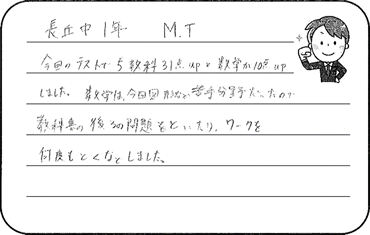 長丘中1年 M.T
今回のテストで5教科31点upと数学が10点up
しました。数学は、今回図形など苦手分野だったので
教科書の後ろの問題をといたり、ワークを
何度もとくなどしました。